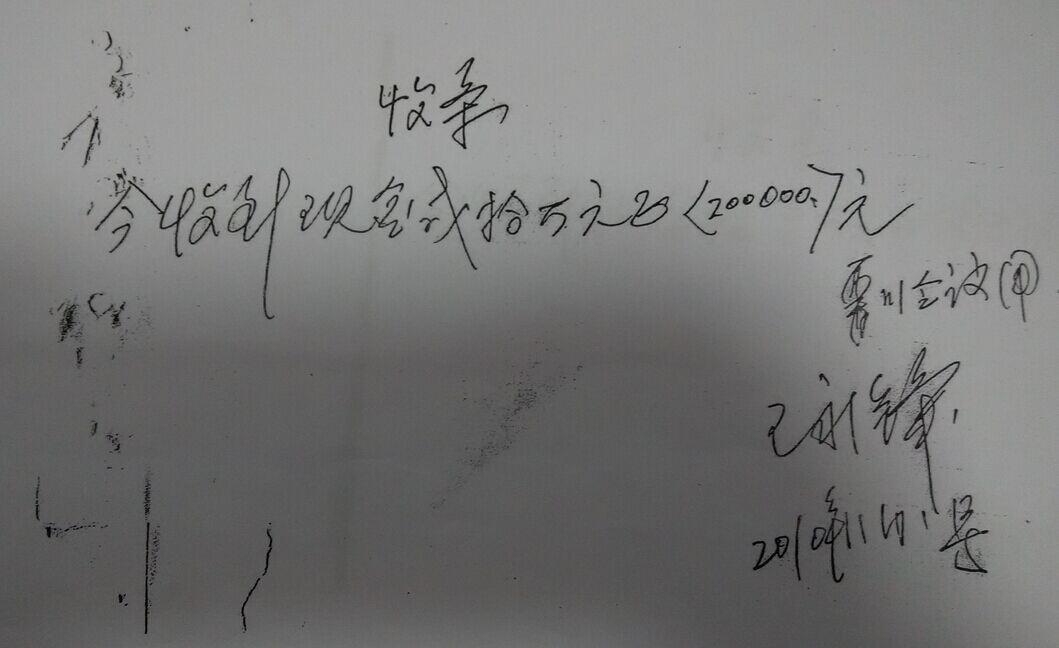 收条
今收到现金贰拾万元正<200000.>元
川会议
王永锋
2010年11月1号